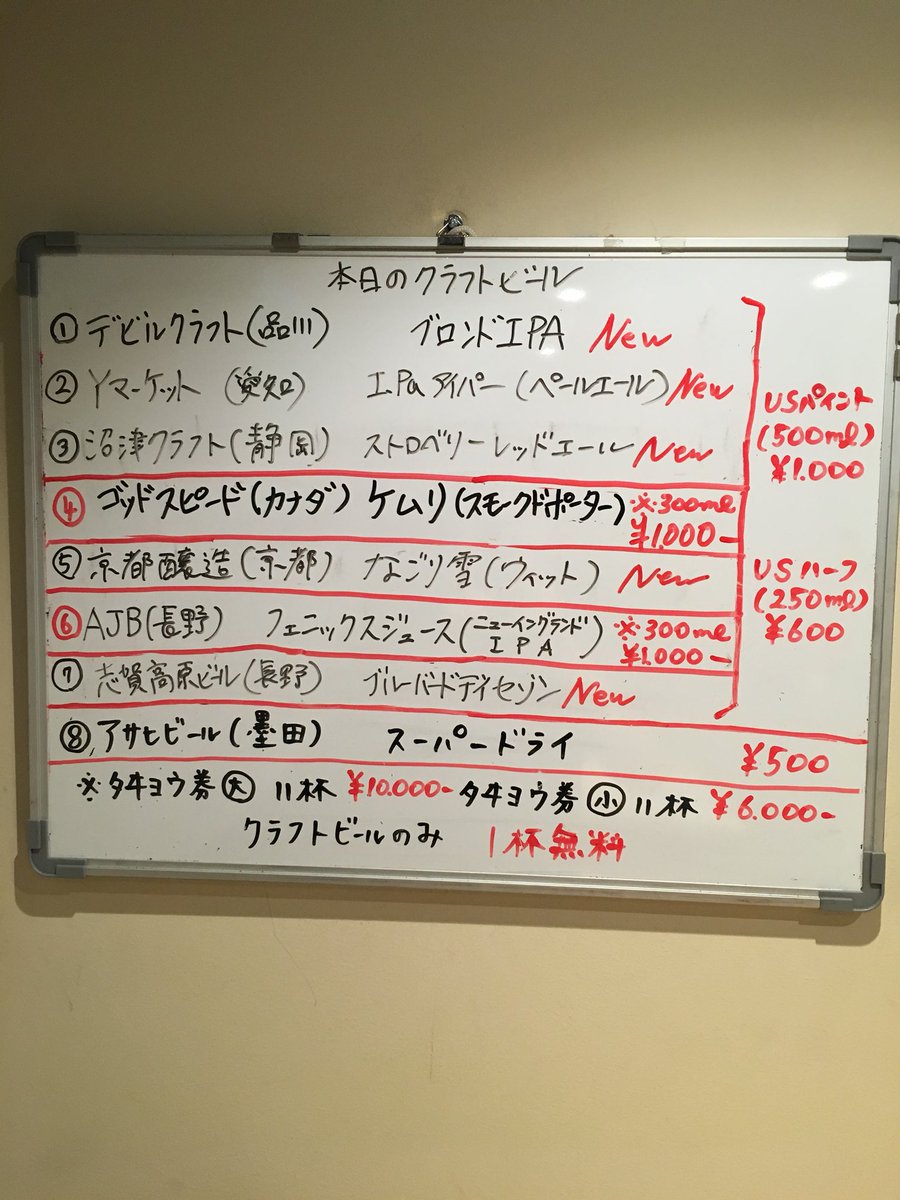 本日のクラフトビール
① デビルクラフト(品川) ブロンドIPA New
② Yマーケット (愛知) IPaアイパー(ペールエール) New
USパイント
(500ml)
¥1.000
③ 沼津クラフト(静岡) ストロベリーレッドエール New
④ ゴッドスピード(カナダ) ケムリ(スモークドポーター) ※300ml
¥1.000-
⑤ 京都醸造(京都) なごり雪(ウィット) New
USハーフ
(250ml)
¥600
⑥ AJB(長野) フェニックスジュース(ニューイングランド IPA) ※300ml
¥1.000-
⑦ 志賀高原ビール(長野) ブルーバードデイセゾン New
⑧ アサヒビール(墨田) スーパードライ ¥500
※タキヨウ券 大 11杯 ¥10.000- タキヨウ券 小 11杯 ¥6.000-
クラフトビールのみ 1杯無料